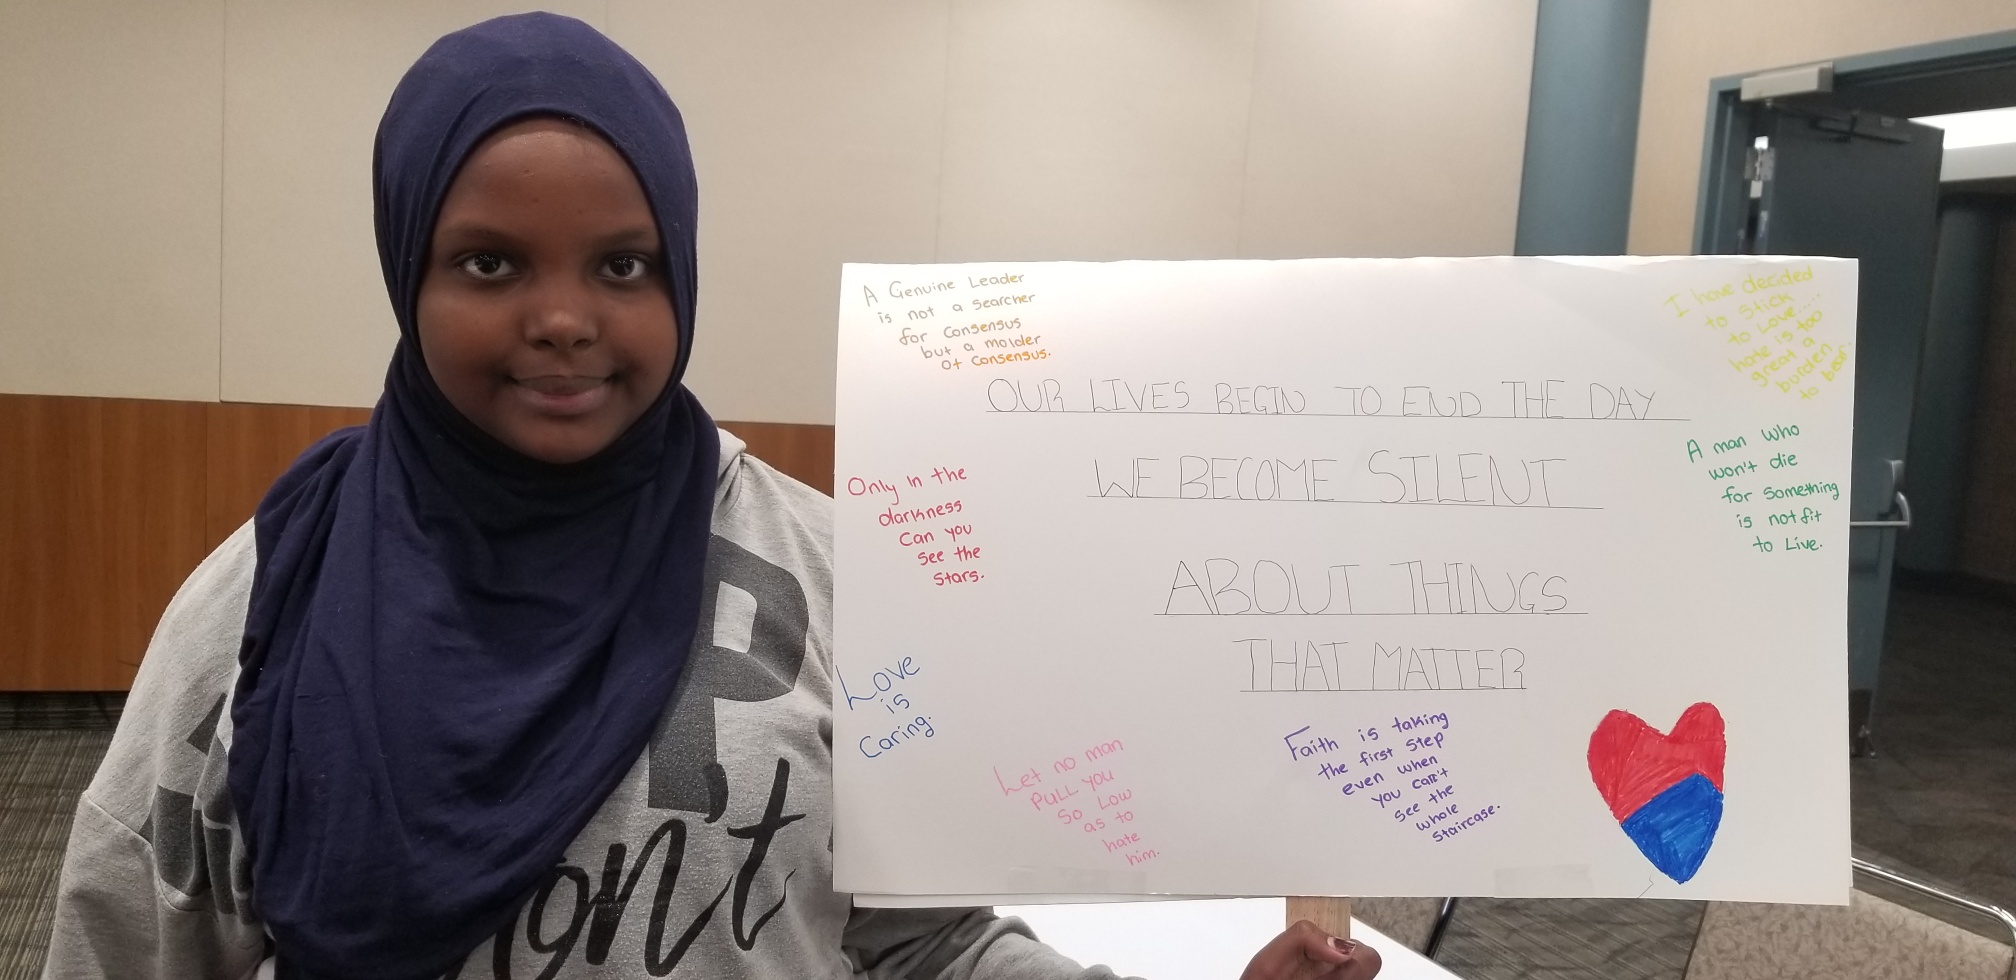 A Genuine Leader
is not a searcher
for consensus
but a molder
of consensus.
I have decided
to stick
to Love.....
hate is too
great a
burden
to bear.
OUR LIVES BEGIN TO END THE DAY
WE BECOME SILENT
ABOUT THINGS
THAT MATTER
Only in the
darkness
can you
see the
stars.
A man who
won't die
for something
is not fit
to Live.
Love
is
Caring.
Let no man
PULL you
so Low
as to
hate
him.
Faith is taking
the first step
even when
you can't
see the
whole
staircase.
P,
on't